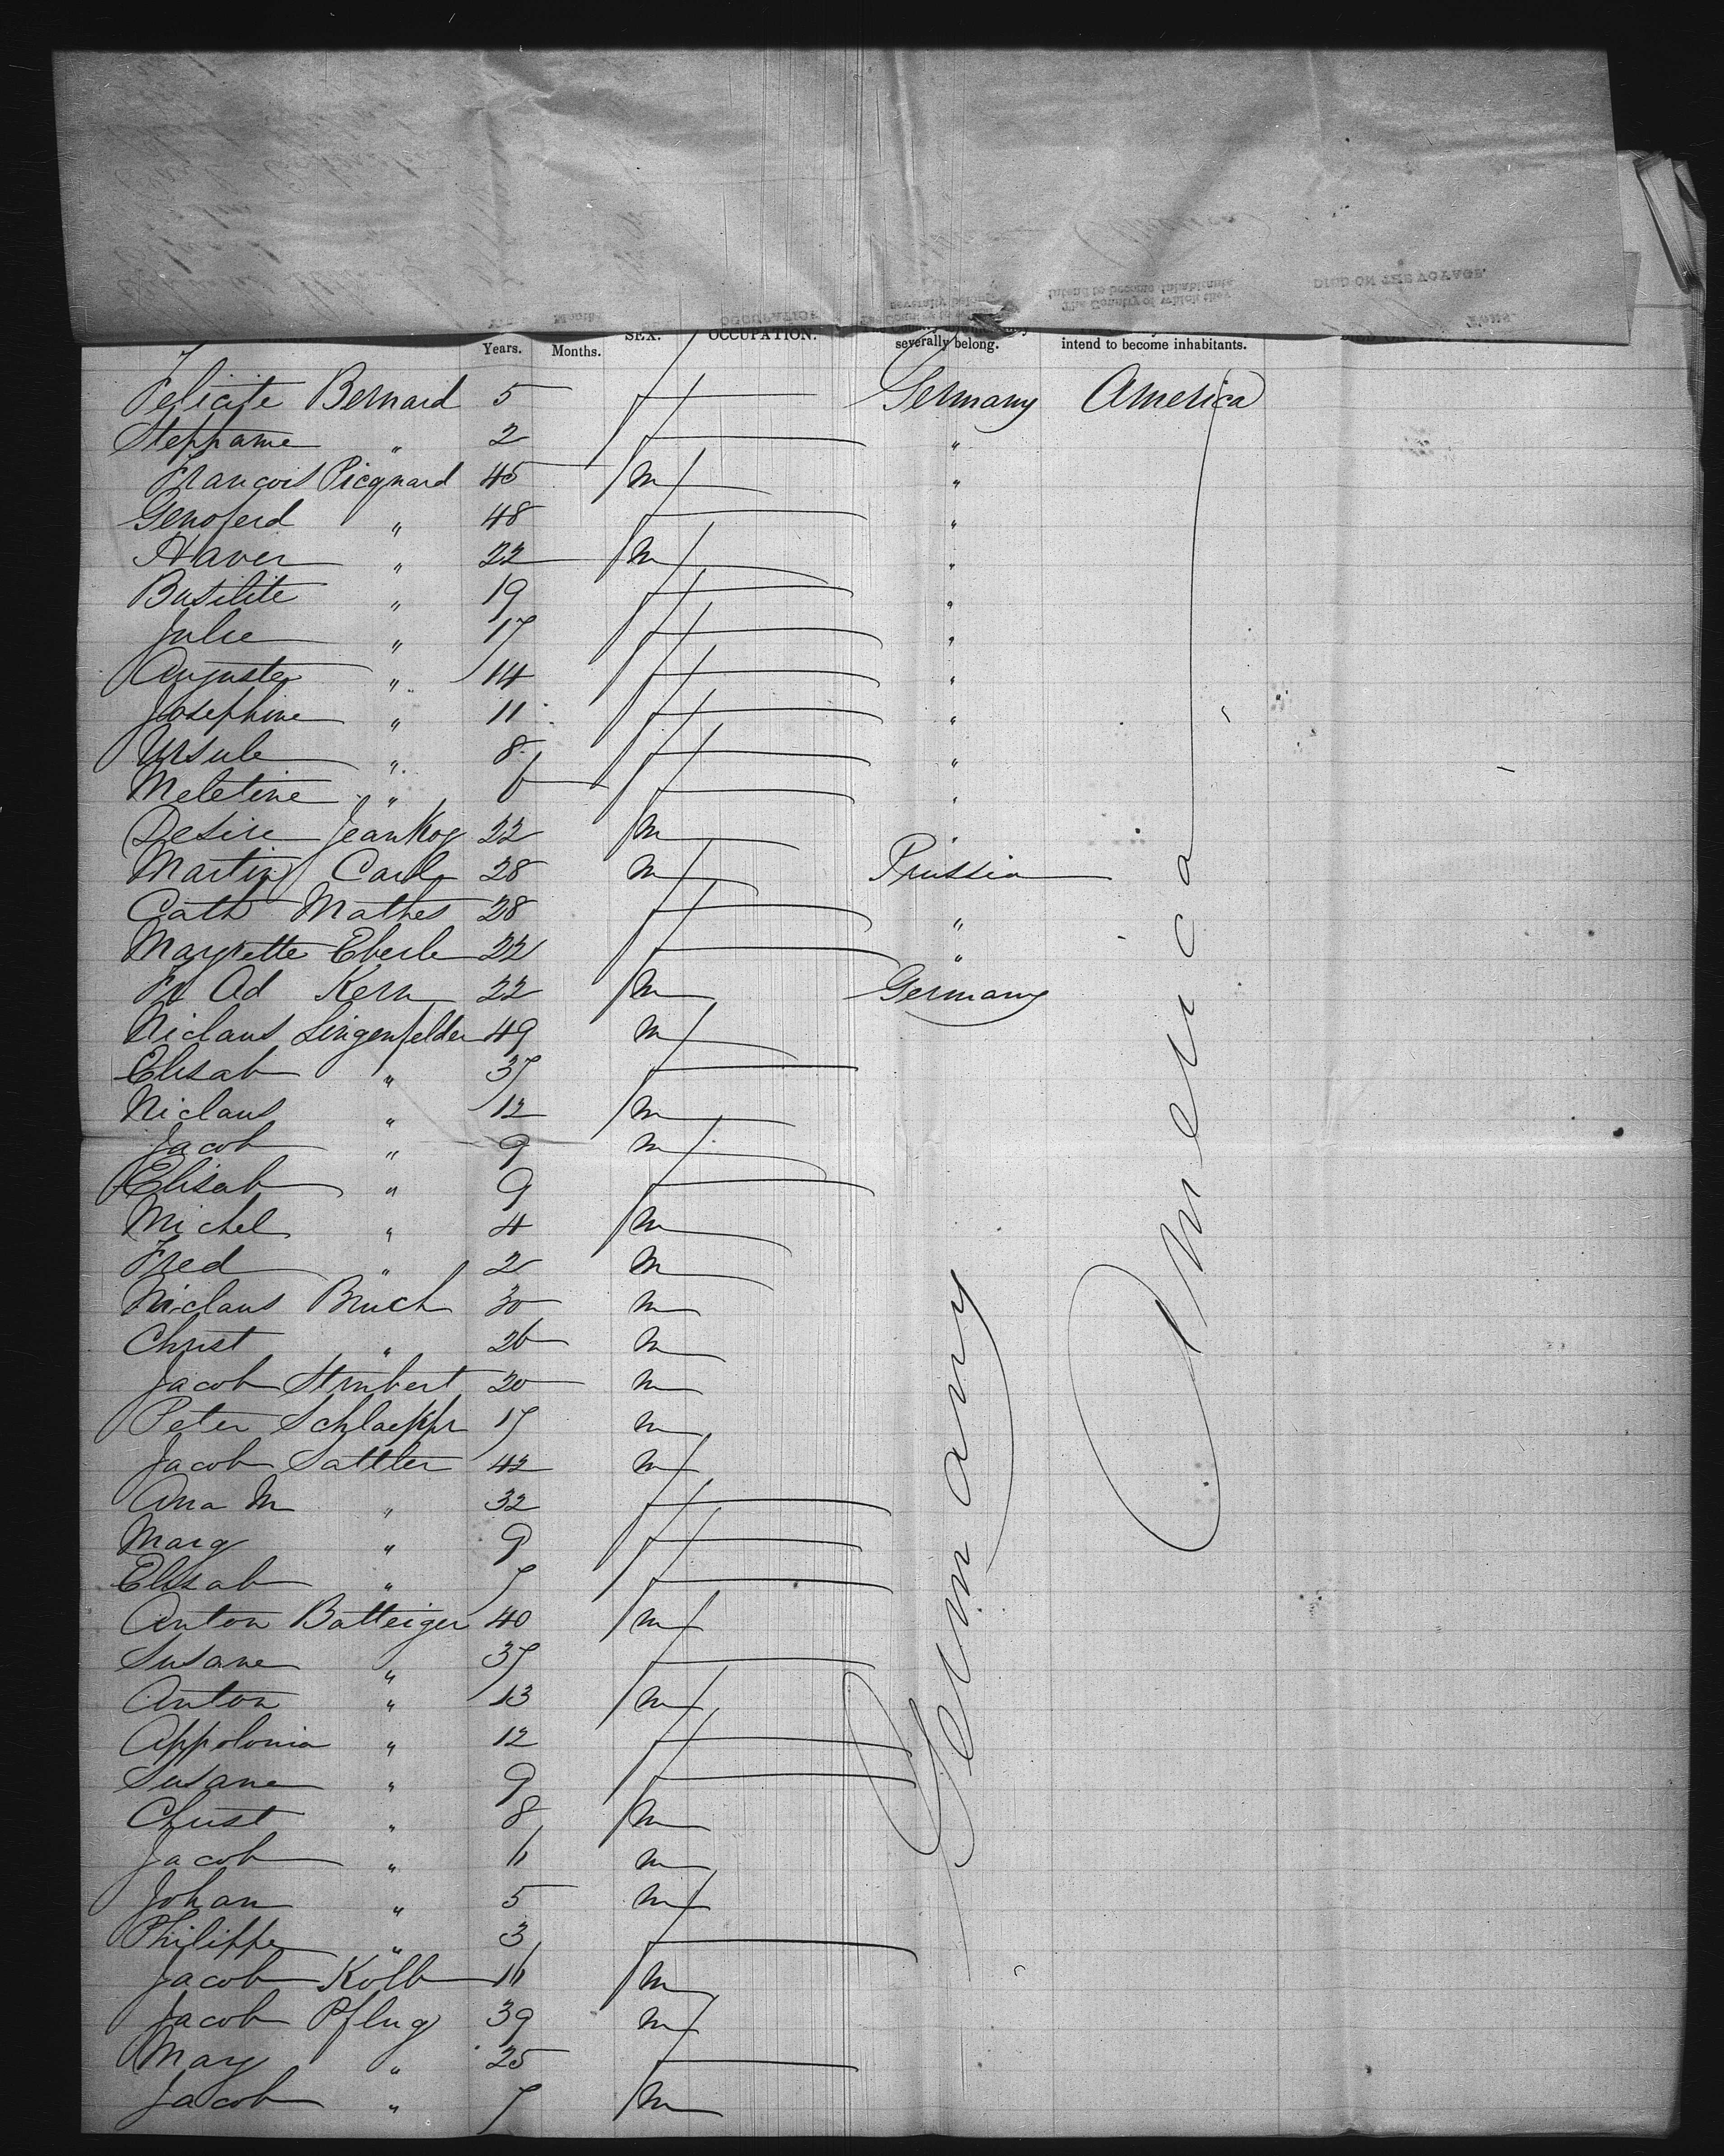 Years. Months. SEX. OCCUPATION. severally belong. intend to become inhabitants.
Felicite Bernard 5 f Germany America
Steppanie " 2 f "
Francois Picgnard 45 m "
Genoferd " 48 f "
Xaver " 22 m "
Basilite " 19 f "
Julie " 17 f "
Auguste " 14 f "
Josephine " 11 f "
Ursule " 8 f "
Meletine " 6 f "
Desire Jean 22 m "
Martin Carl 28 m Prussia
Cath Mathes 28 f "
Margrette Eberle 22 f "
Fr Ad Kern 22 m Germany
Niclaus Lingenfelder 49 m
Elisab " 37 f
Niclaus " 12 m
Jacob " 9 m
Elisab " 9 f
Michel " 4 m
Fred " 2 m
Niclaus Bruch 30 m
Christ " 26 m
Jacob Strubert 20 m
Peter 17 m
Jacob Sattler 42 m
Ana M " 32 f
Marg " 9 f
Elisab " 7 f
Anton Batteiger 40 m
Susane " 37 f
Anton " 13 m
Appolonia " 12 f
Susane " 9 f
Christ " 8 m
Jacob " 6 m
Johan " 5 m
Philippe " 3 f
Jacob Kolb 16 m
Jacob Pflug 39 m
Mary " 25 f
Jacob " 7 m
Germany
America